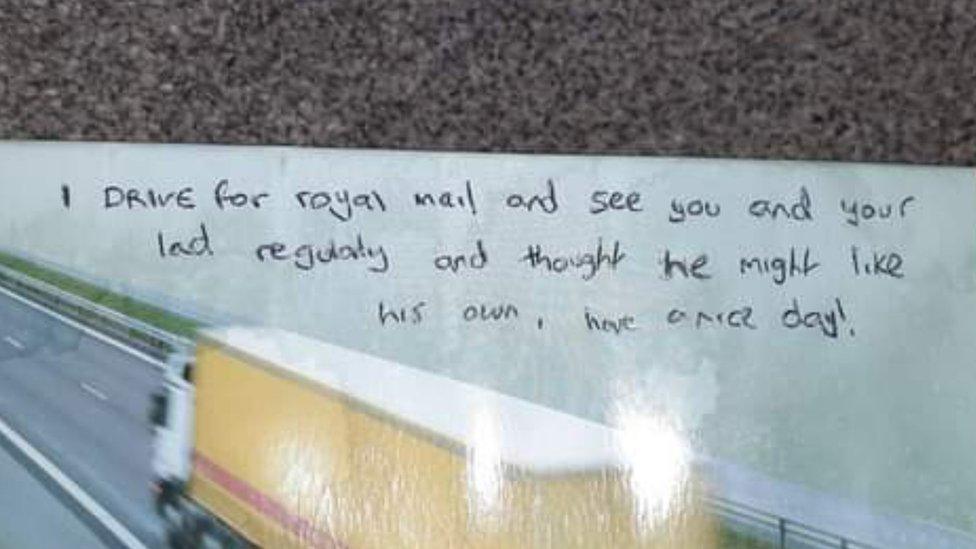 I DRIVE for royal mail and see you and your
lad regularly and thought he might like
his own, have a nice day!.